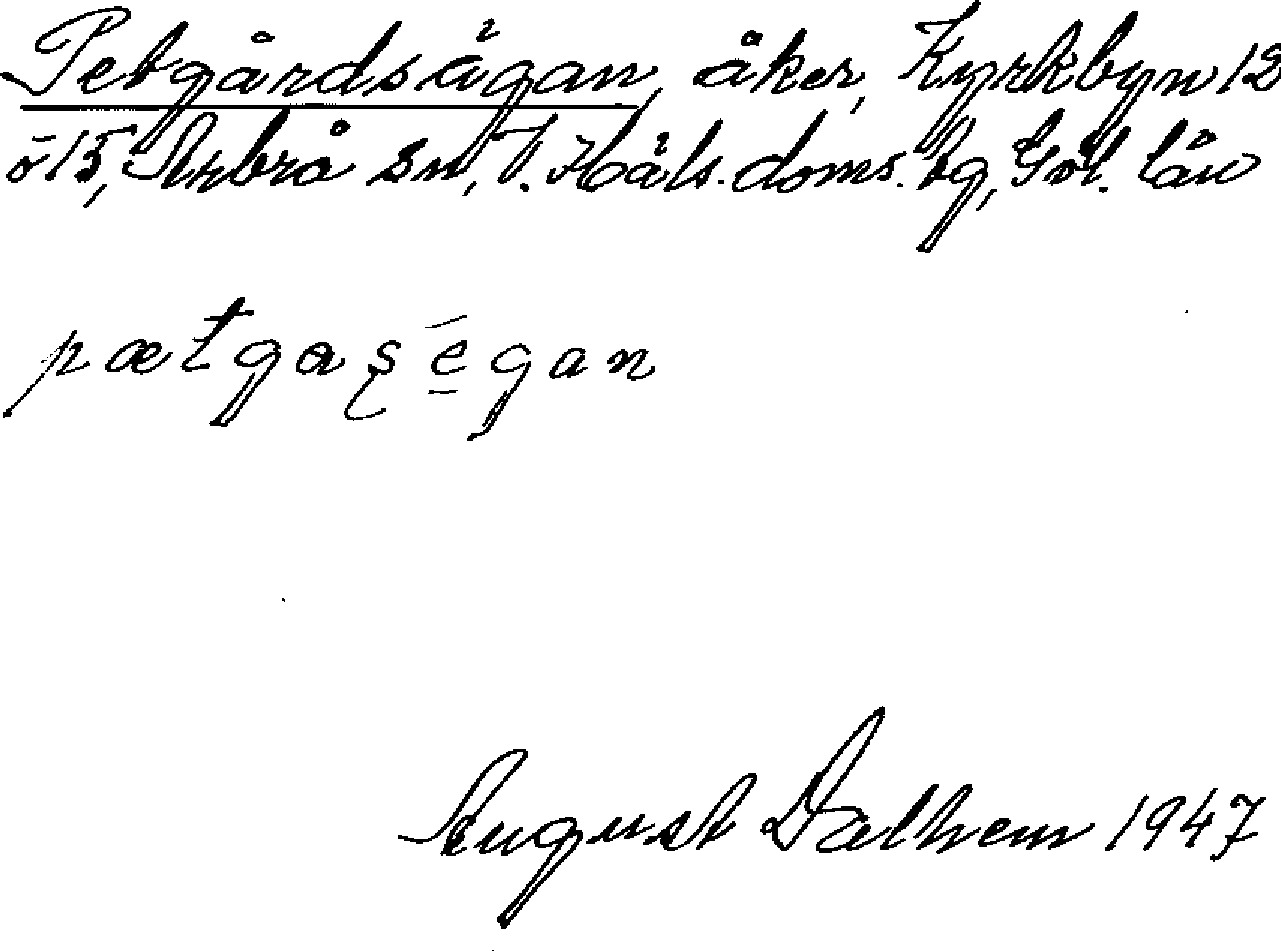 Petgårdsägan, åker, Kyrkbyn 12
o 15, Arbrå sn, V. Häls. doms. bg, Gvl. län
pætgaşēgan
August Dalhem 1947